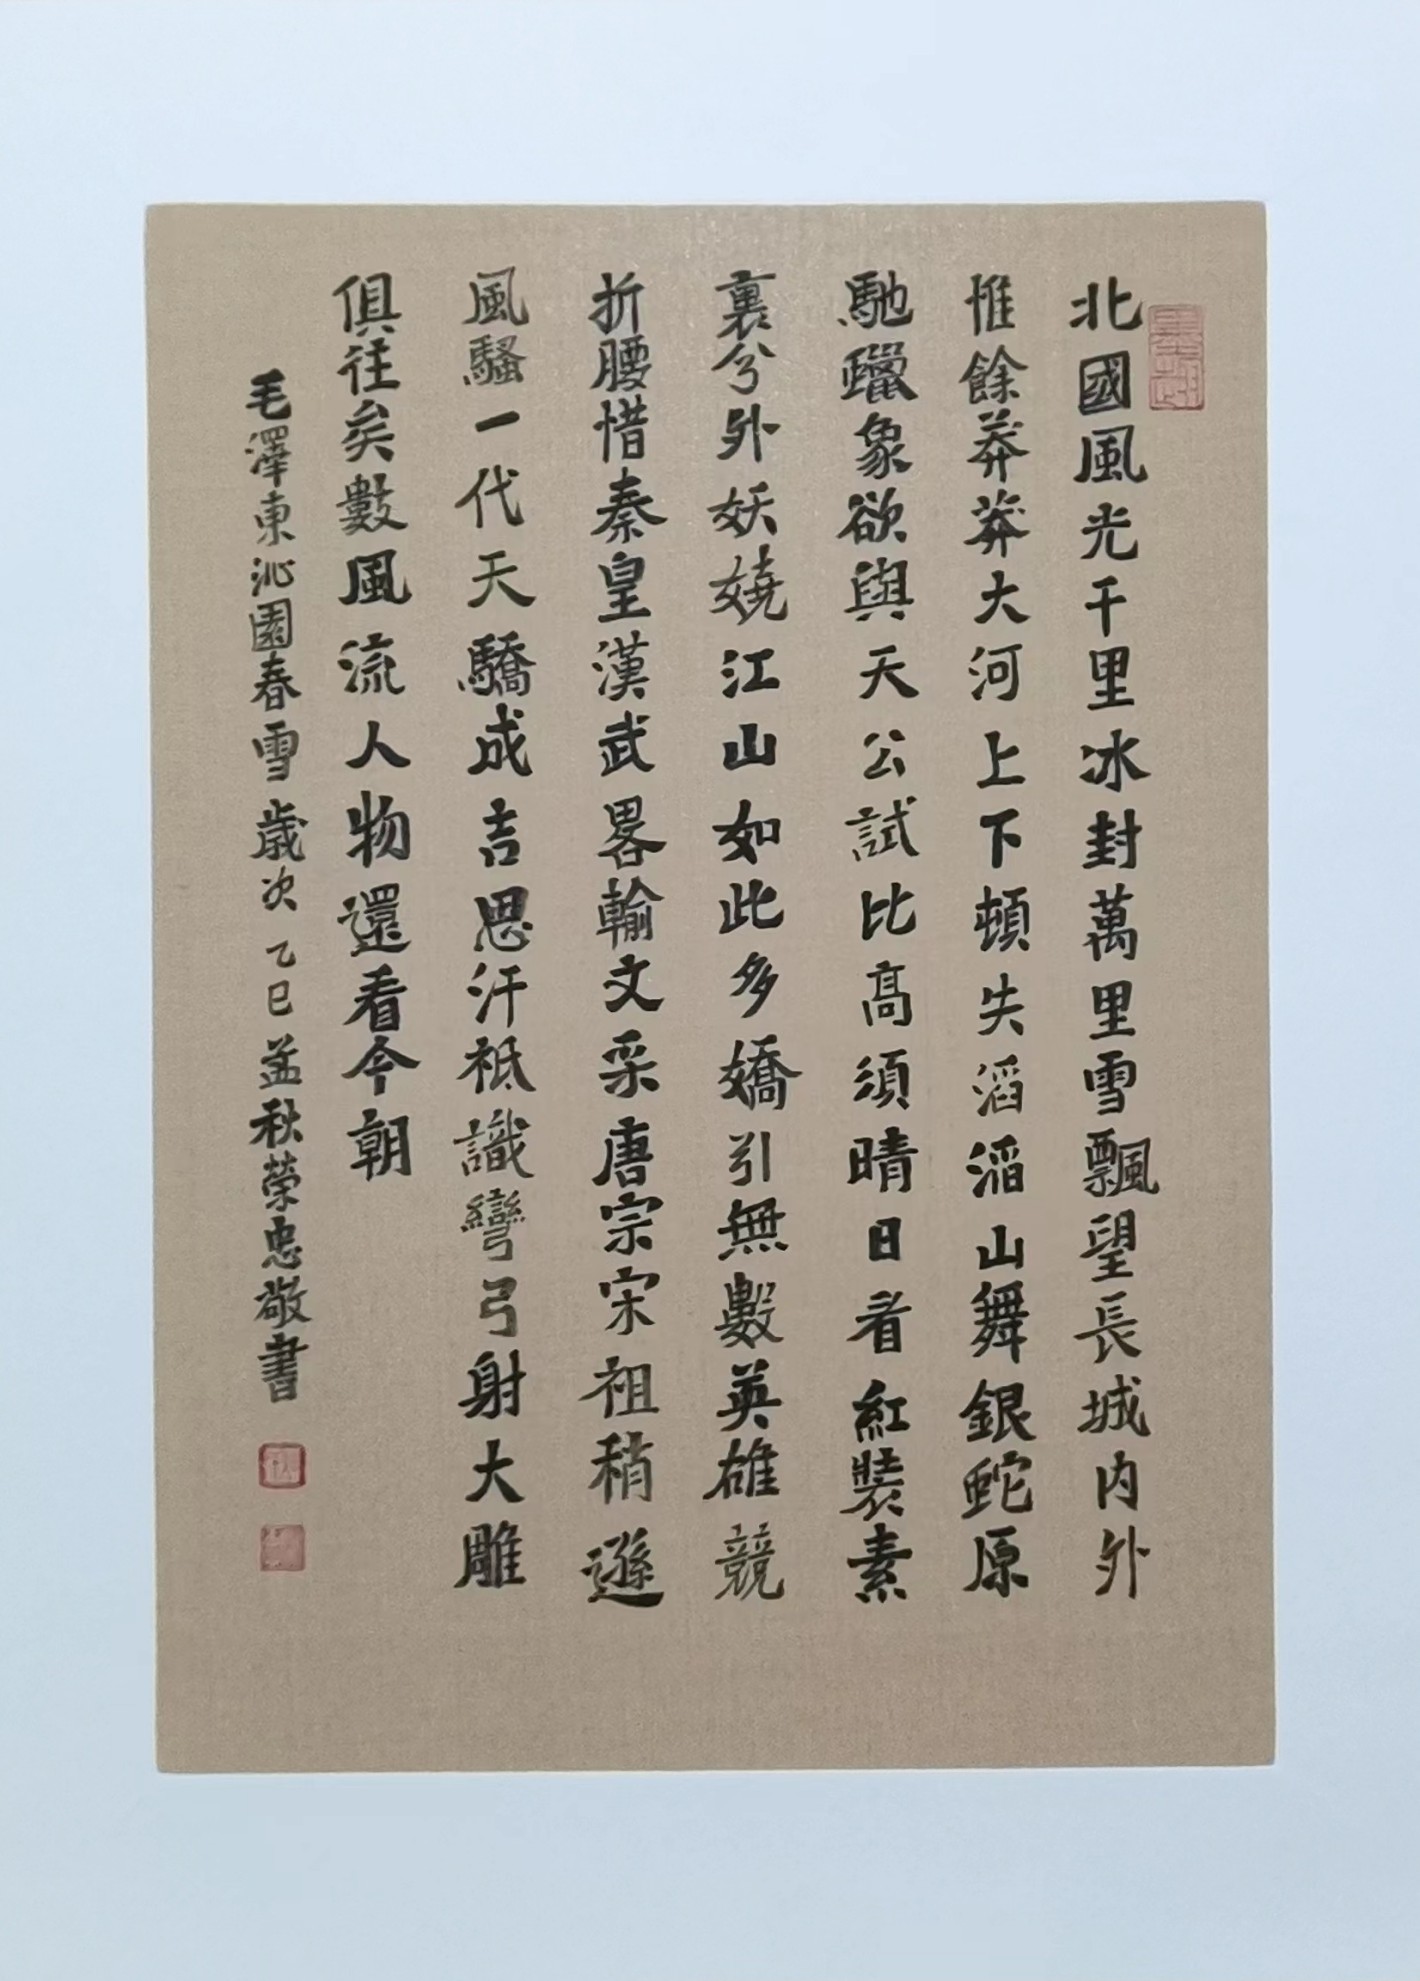 北國風光千里冰封萬里雪飄望長城内外
惟餘莽莽大河上下頓失滔滔山舞銀蛇原
馳躐象欲與天公試比高須晴日看紅裝素
裹兮外妖嬈江山如此多嬌引無數英雄競
折腰惜秦皇漢武畧輸文采唐宗宋祖稍遜
風騷一代天驕成吉思汗祗識彎弓射大雕
俱往矣數風流人物還看今朝
毛澤東沁園春雪歲次乙巳孟秋榮忠敬書